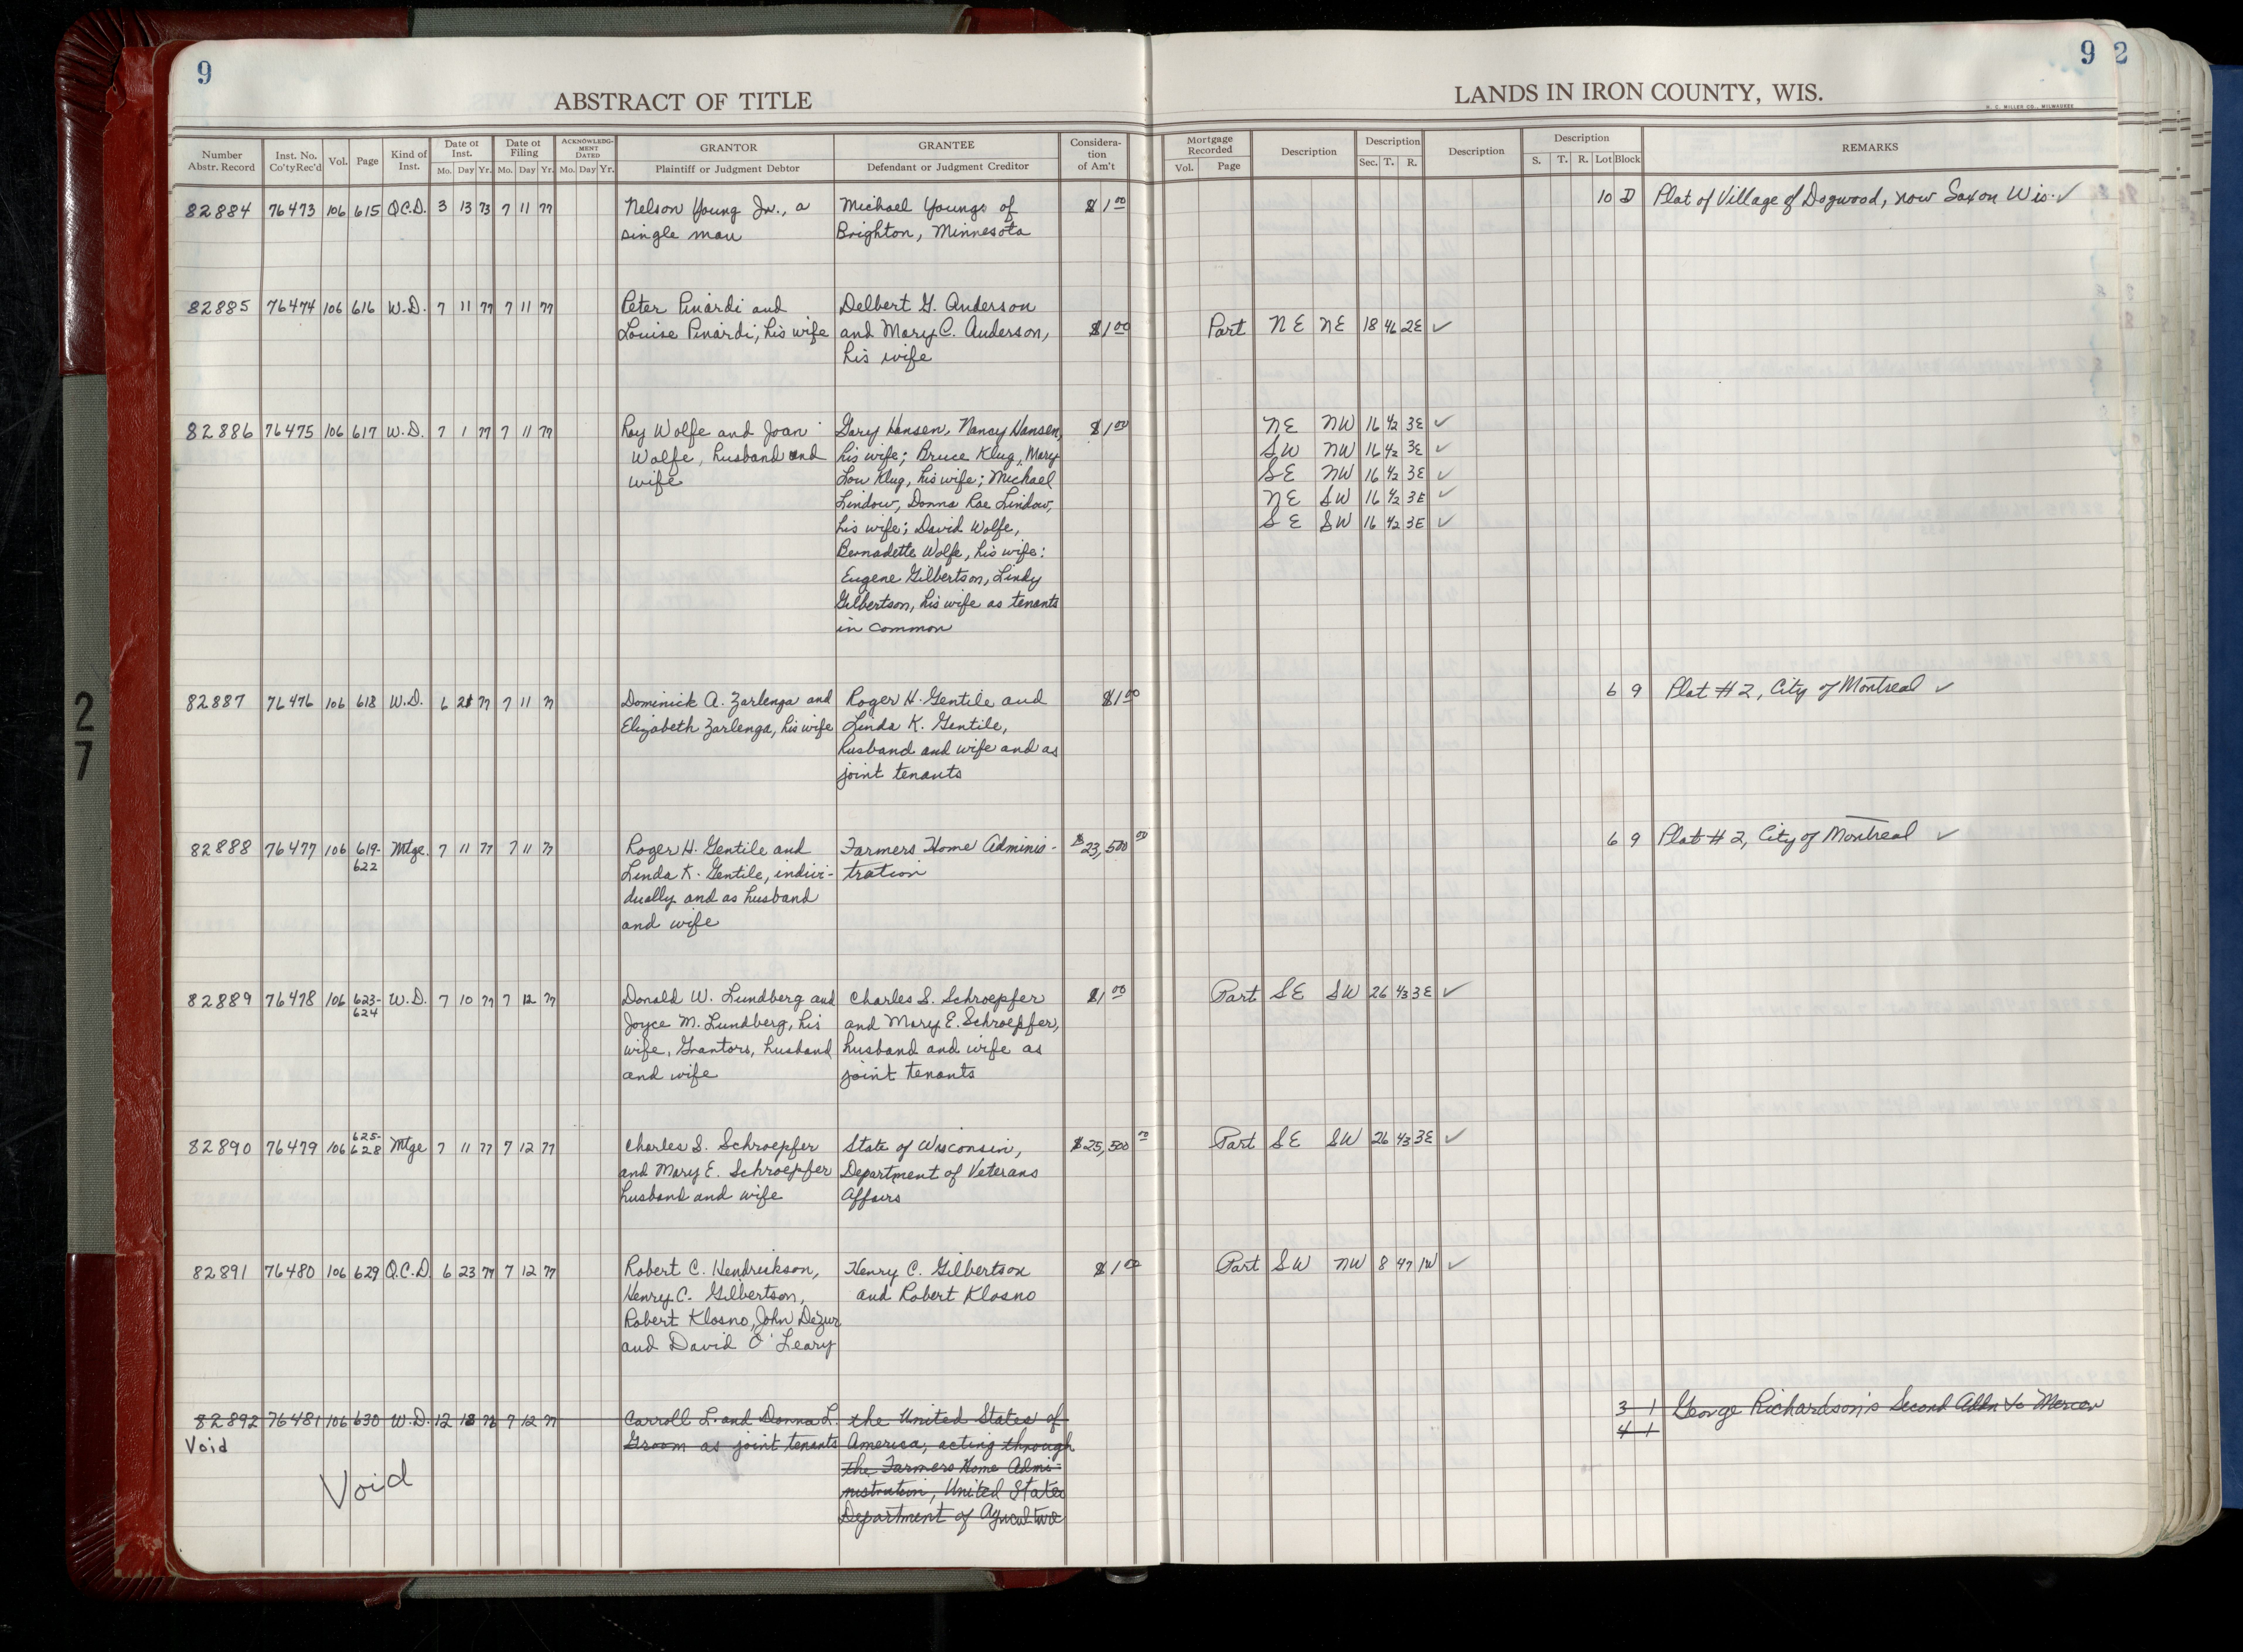 9
ABSTRACT OF TITLE
Number Abstr. Record
Inst. No. Co'ty Rec'd
Vol.
Page
Kind of Inst.
Date of Inst.
Mo. Day Yr.
Date of Filing
Mo. Day Yr.
ACKNOWLEDGMENT DATED
Mo. Day Yr.
GRANTOR
Plaintiff or Judgment Debtor
GRANTEE
Defendant or Judgment Creditor
Consideration of Am't
9 2
LANDS IN IRON COUNTY, WIS.
H. C. MILLER CO., MILWAUKEE
Mortgage Recorded
Vol. Page
Description
Description
Sec. T. R.
Description
Description
S. T. R. Lot Block
REMARKS
82884 76473 106 615 Q.C.D. 3 13 73 7 11 77 Nelson Young Jr., a Michael Youngs of $1.00 10 D Plat of Village of Dogwood, now Saxon Wis. ✓
single man Brighton, Minnesota
82885 76474 106 616 W.D. 7 11 77 7 11 77 Peter Pinardi and Delbert G. Anderson
Louise Pinardi, his wife and Mary C. Anderson, $1.00 Part NE NE 18 46 2E ✓
his wife
82886 76475 106 617 W.D. 7 1 77 7 11 77 Roy Wolfe and Joan Gary Hansen, Nancy Hansen, $1.00 NE NW 16 42 3E ✓
Wolfe, husband and his wife; Bruce Klug, Mary SW NW 16 42 3E ✓
wife Lou Klug, his wife; Michael SE NW 16 42 3E ✓
Lindow, Donna Rae Lindow, NE SW 16 42 3E ✓
his wife; David Wolfe, SE SW 16 42 3E ✓
Bernadette Wolfe, his wife:
Eugene Gilbertson, Lindy
Gilbertson, his wife as tenants
in common
82887 76476 106 618 W.D. 6 21 77 7 11 77 Dominick A. Zarlenga and Roger H. Gentile and $1.00 6 9 Plat #2, City of Montreal ✓
Elizabeth Zarlenga, his wife Linda K. Gentile,
husband and wife and as
joint tenants
82888 76477 106 619- Mtge. 7 11 77 7 11 77 Roger H. Gentile and Farmers Home Adminis- $23,500.00 6 9 Plat #2, City of Montreal ✓
622 Linda K. Gentile, indivi- tration
dually and as husband
and wife
82889 76478 106 623- W.D. 7 10 77 7 12 77 Donald W. Lundberg and Charles S. Schroepfer $1.00 Part SE SW 26 43 3E ✓
624 Joyce M. Lundberg, his and Mary E. Schroepfer,
wife, Grantors, husband husband and wife as
and wife joint tenants
82890 76479 106 625- Mtge 7 11 77 7 12 77 Charles S. Schroepfer State of Wisconsin, $25,500.00 Part SE SW 26 43 3E ✓
628 and Mary E. Schroepfer Department of Veterans
husband and wife Affairs
82891 76480 106 629 Q.C.D 6 23 77 7 12 77 Robert C. Hendrickson, Henry C. Gilbertson $1.00 Part SW NW 8 47 1W ✓
Henry C. Gilbertson, and Robert Klosno
Robert Klosno, John Dezur
and David O'Leary
82892 76481 106 630 W.D. 12 18 76 7 12 77 Carroll L. and Donna L. the United States of 3 1 George Richardson's Second Addn to Mercer
Void Groom as joint tenants America, acting through 4 1
Void the Farmers Home Admi-
nistration, United States
Department of Agriculture
27